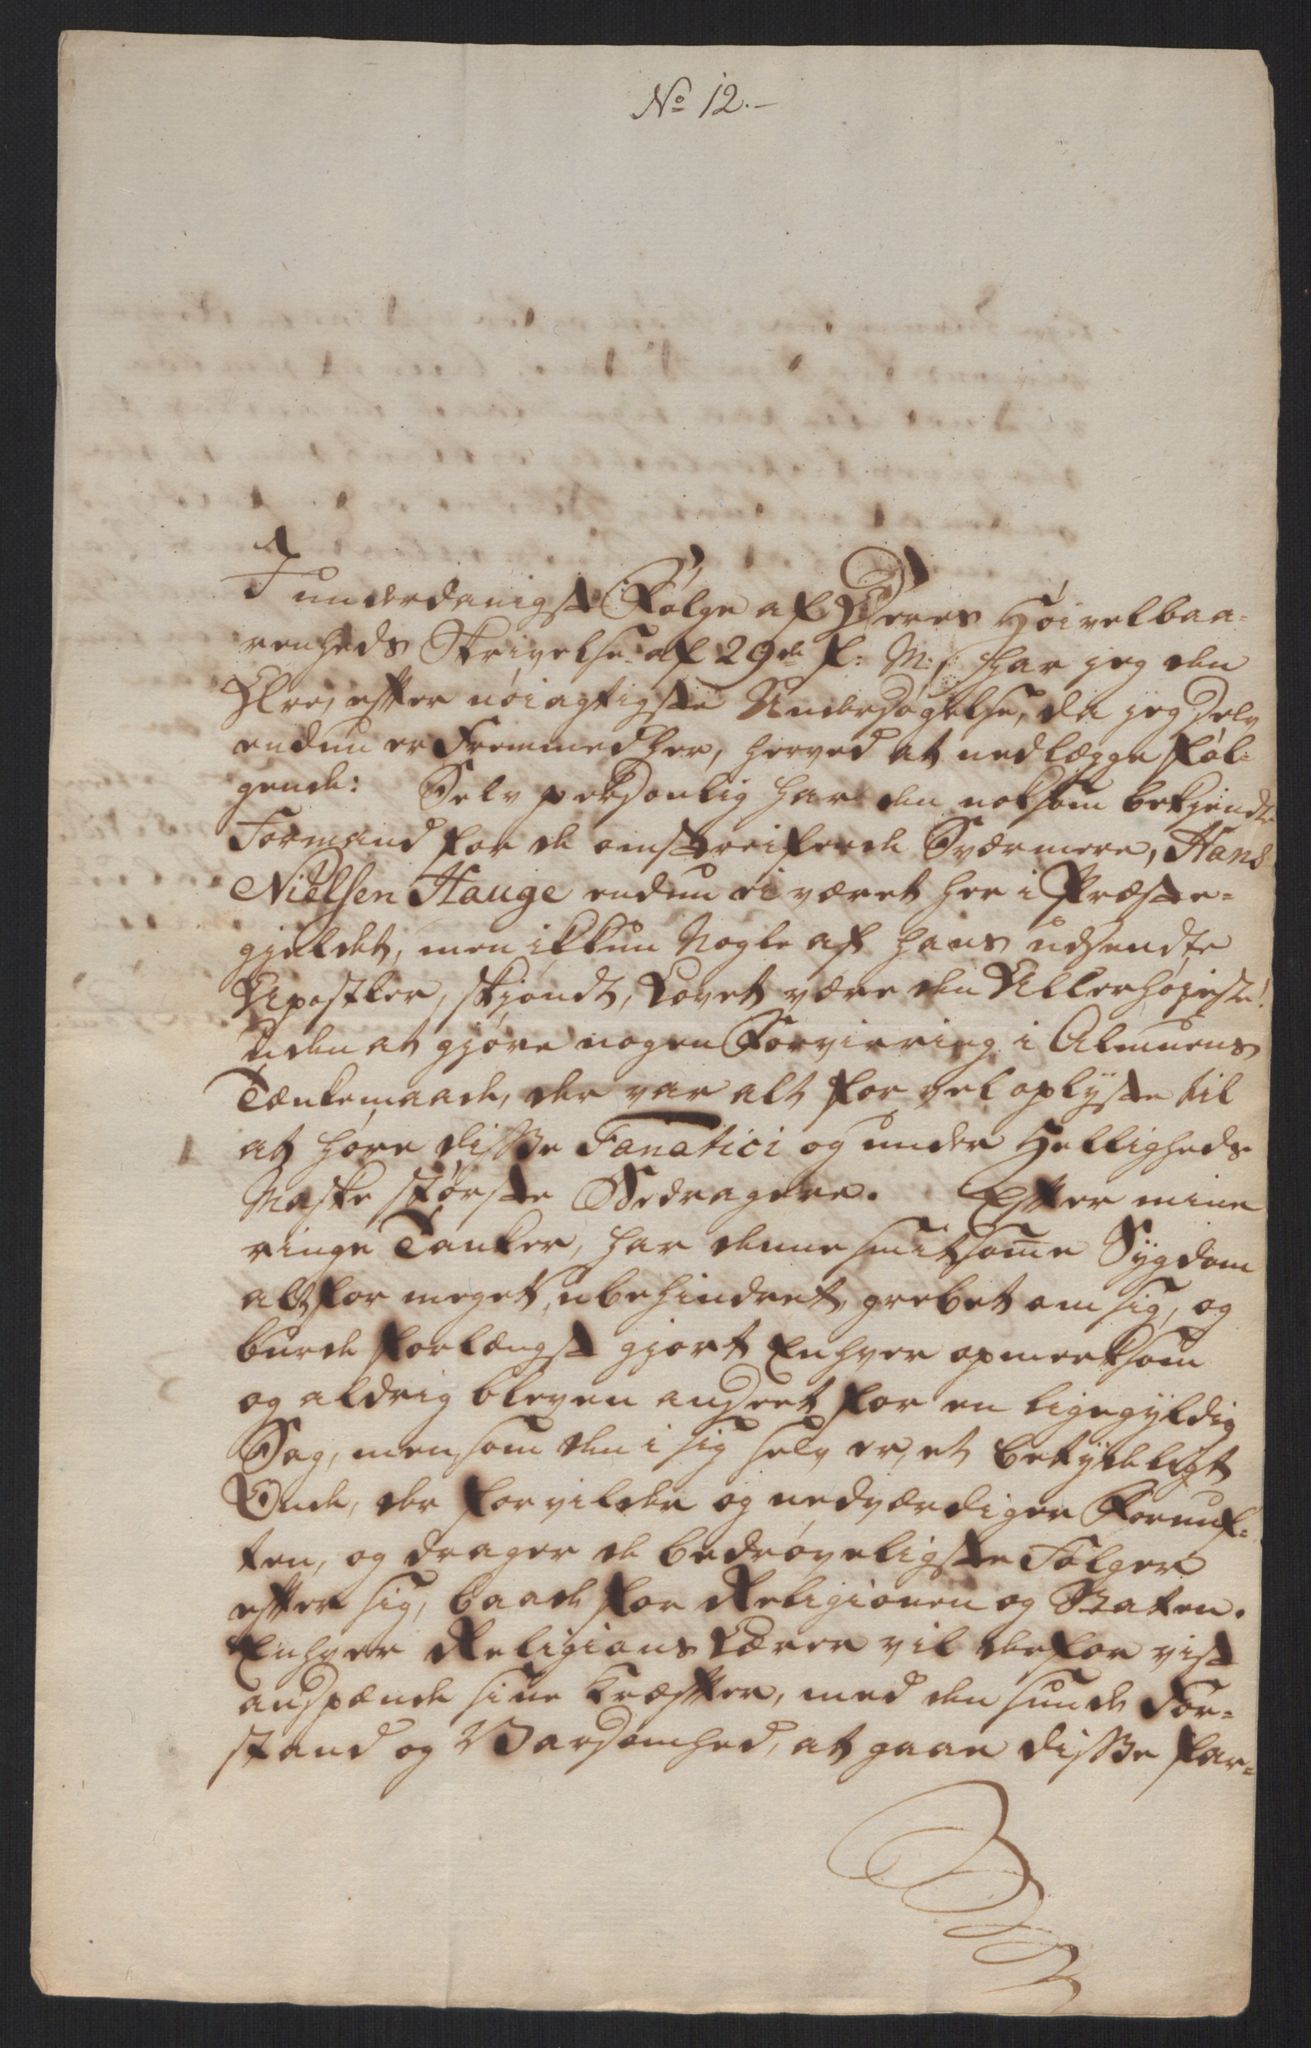 No 12.-
I underdanigst Følge af Deres Høivelbaa-
renheds Skrivelse af 29de f: M:, har jeg den
Ære, efter nøiagtigste Undersøgelse, da jeg selv
endnu er Fremmed her, herved at nedlægge føl-
gende: Selv personlig har den noksom bekjendte
Formand for de omstreifende Sværmere, Hans
Nielsen Hauge endnu ei været her i Præste-
gjeldet, men ikkun Nogle af hans udsendte
Apostler, skjøndt, Lovet være den Allerhøjeste!
uden at gjøre nogen Forvirring i Almuens
Tænkemaade, der var alt for vel oplyste til
at høre disse Fanatici og under Helligheds
Maske største Bedragere. Efter mine
ringe Tanker, har denne smitsome Sygdom
alt for meget, ubehindret, grebet om sig, og
burde forlængst gjort Enhver opmerksom
og aldrig bleven anseet for en ligegyldig
Sag, men, som den i sig selv er, et betydeligt
Onde, der forvilder og nedværdiger Fornuf-
ten, og drager de bedrøveligste Følger
efter sig, baade for Religionen og Staten.
Enhver Religions Lærer vil derfor vist
anspænde sine Kræfter, med den sunde For-
stand og Varsomhed, at gaae disse far-